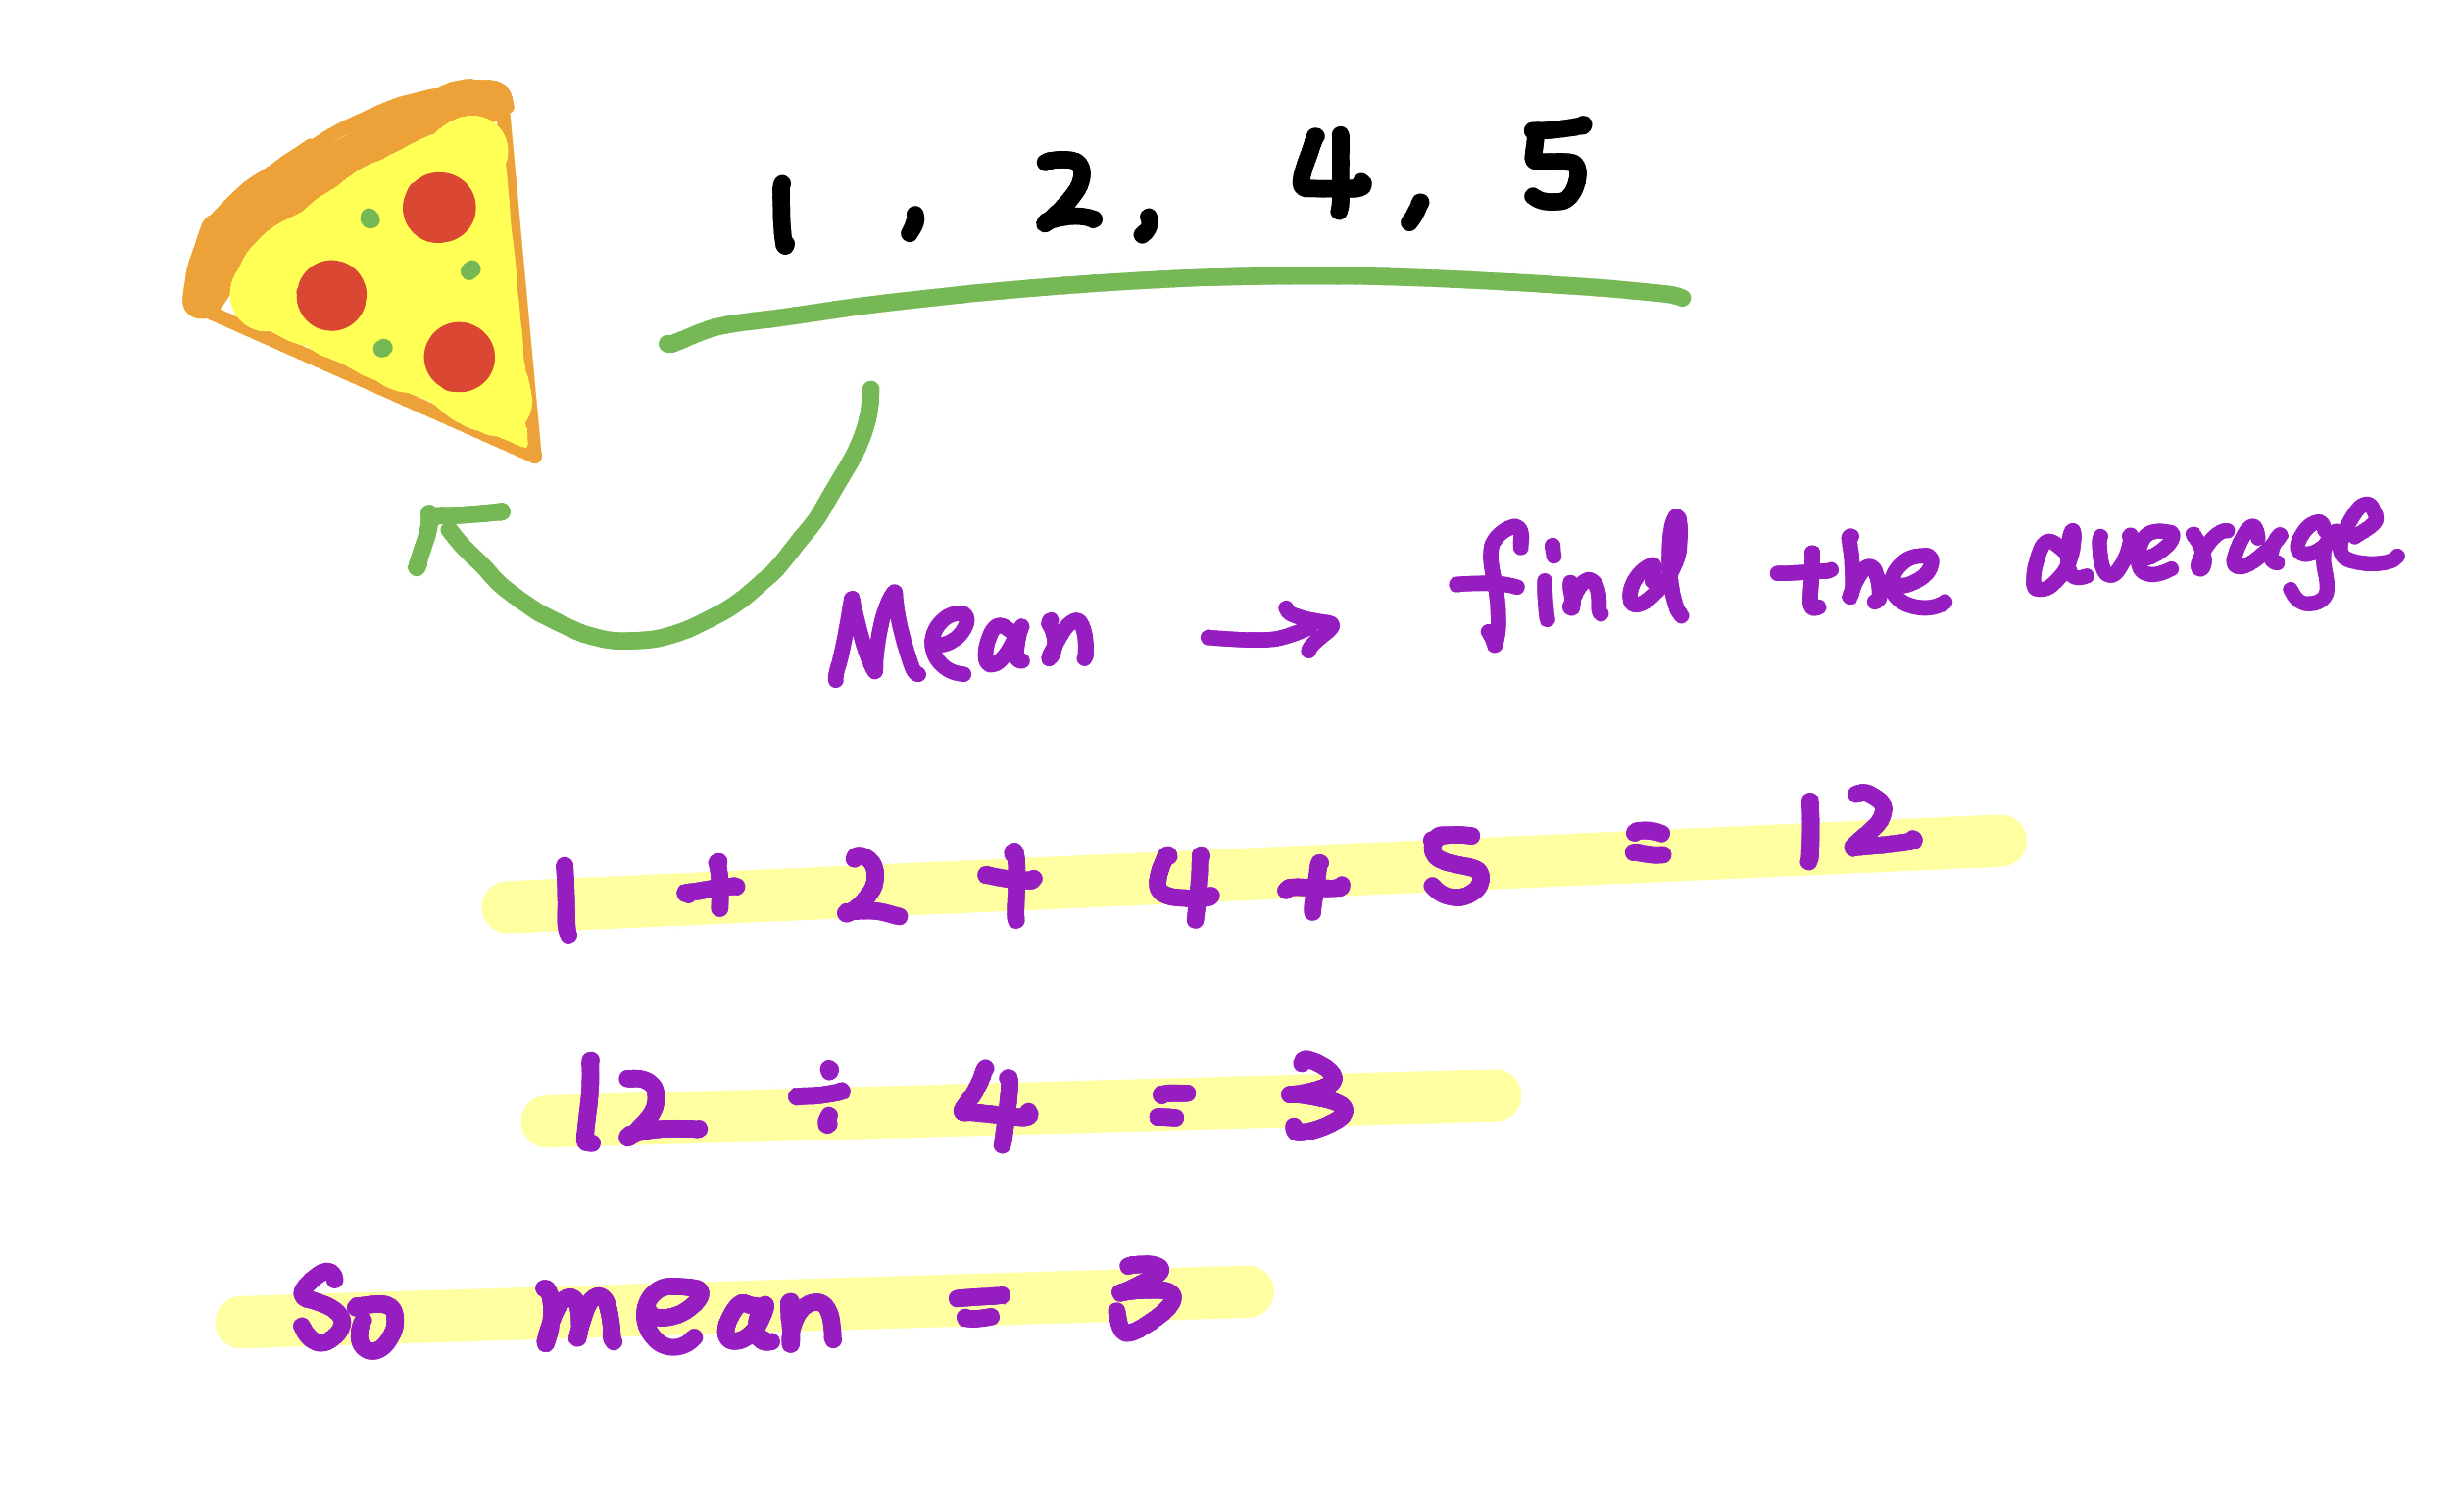 1, 2, 4, 5
Mean → find the average
1 + 2 + 4 + 5 = 12
12 ÷ 4 = 3
So mean = 3